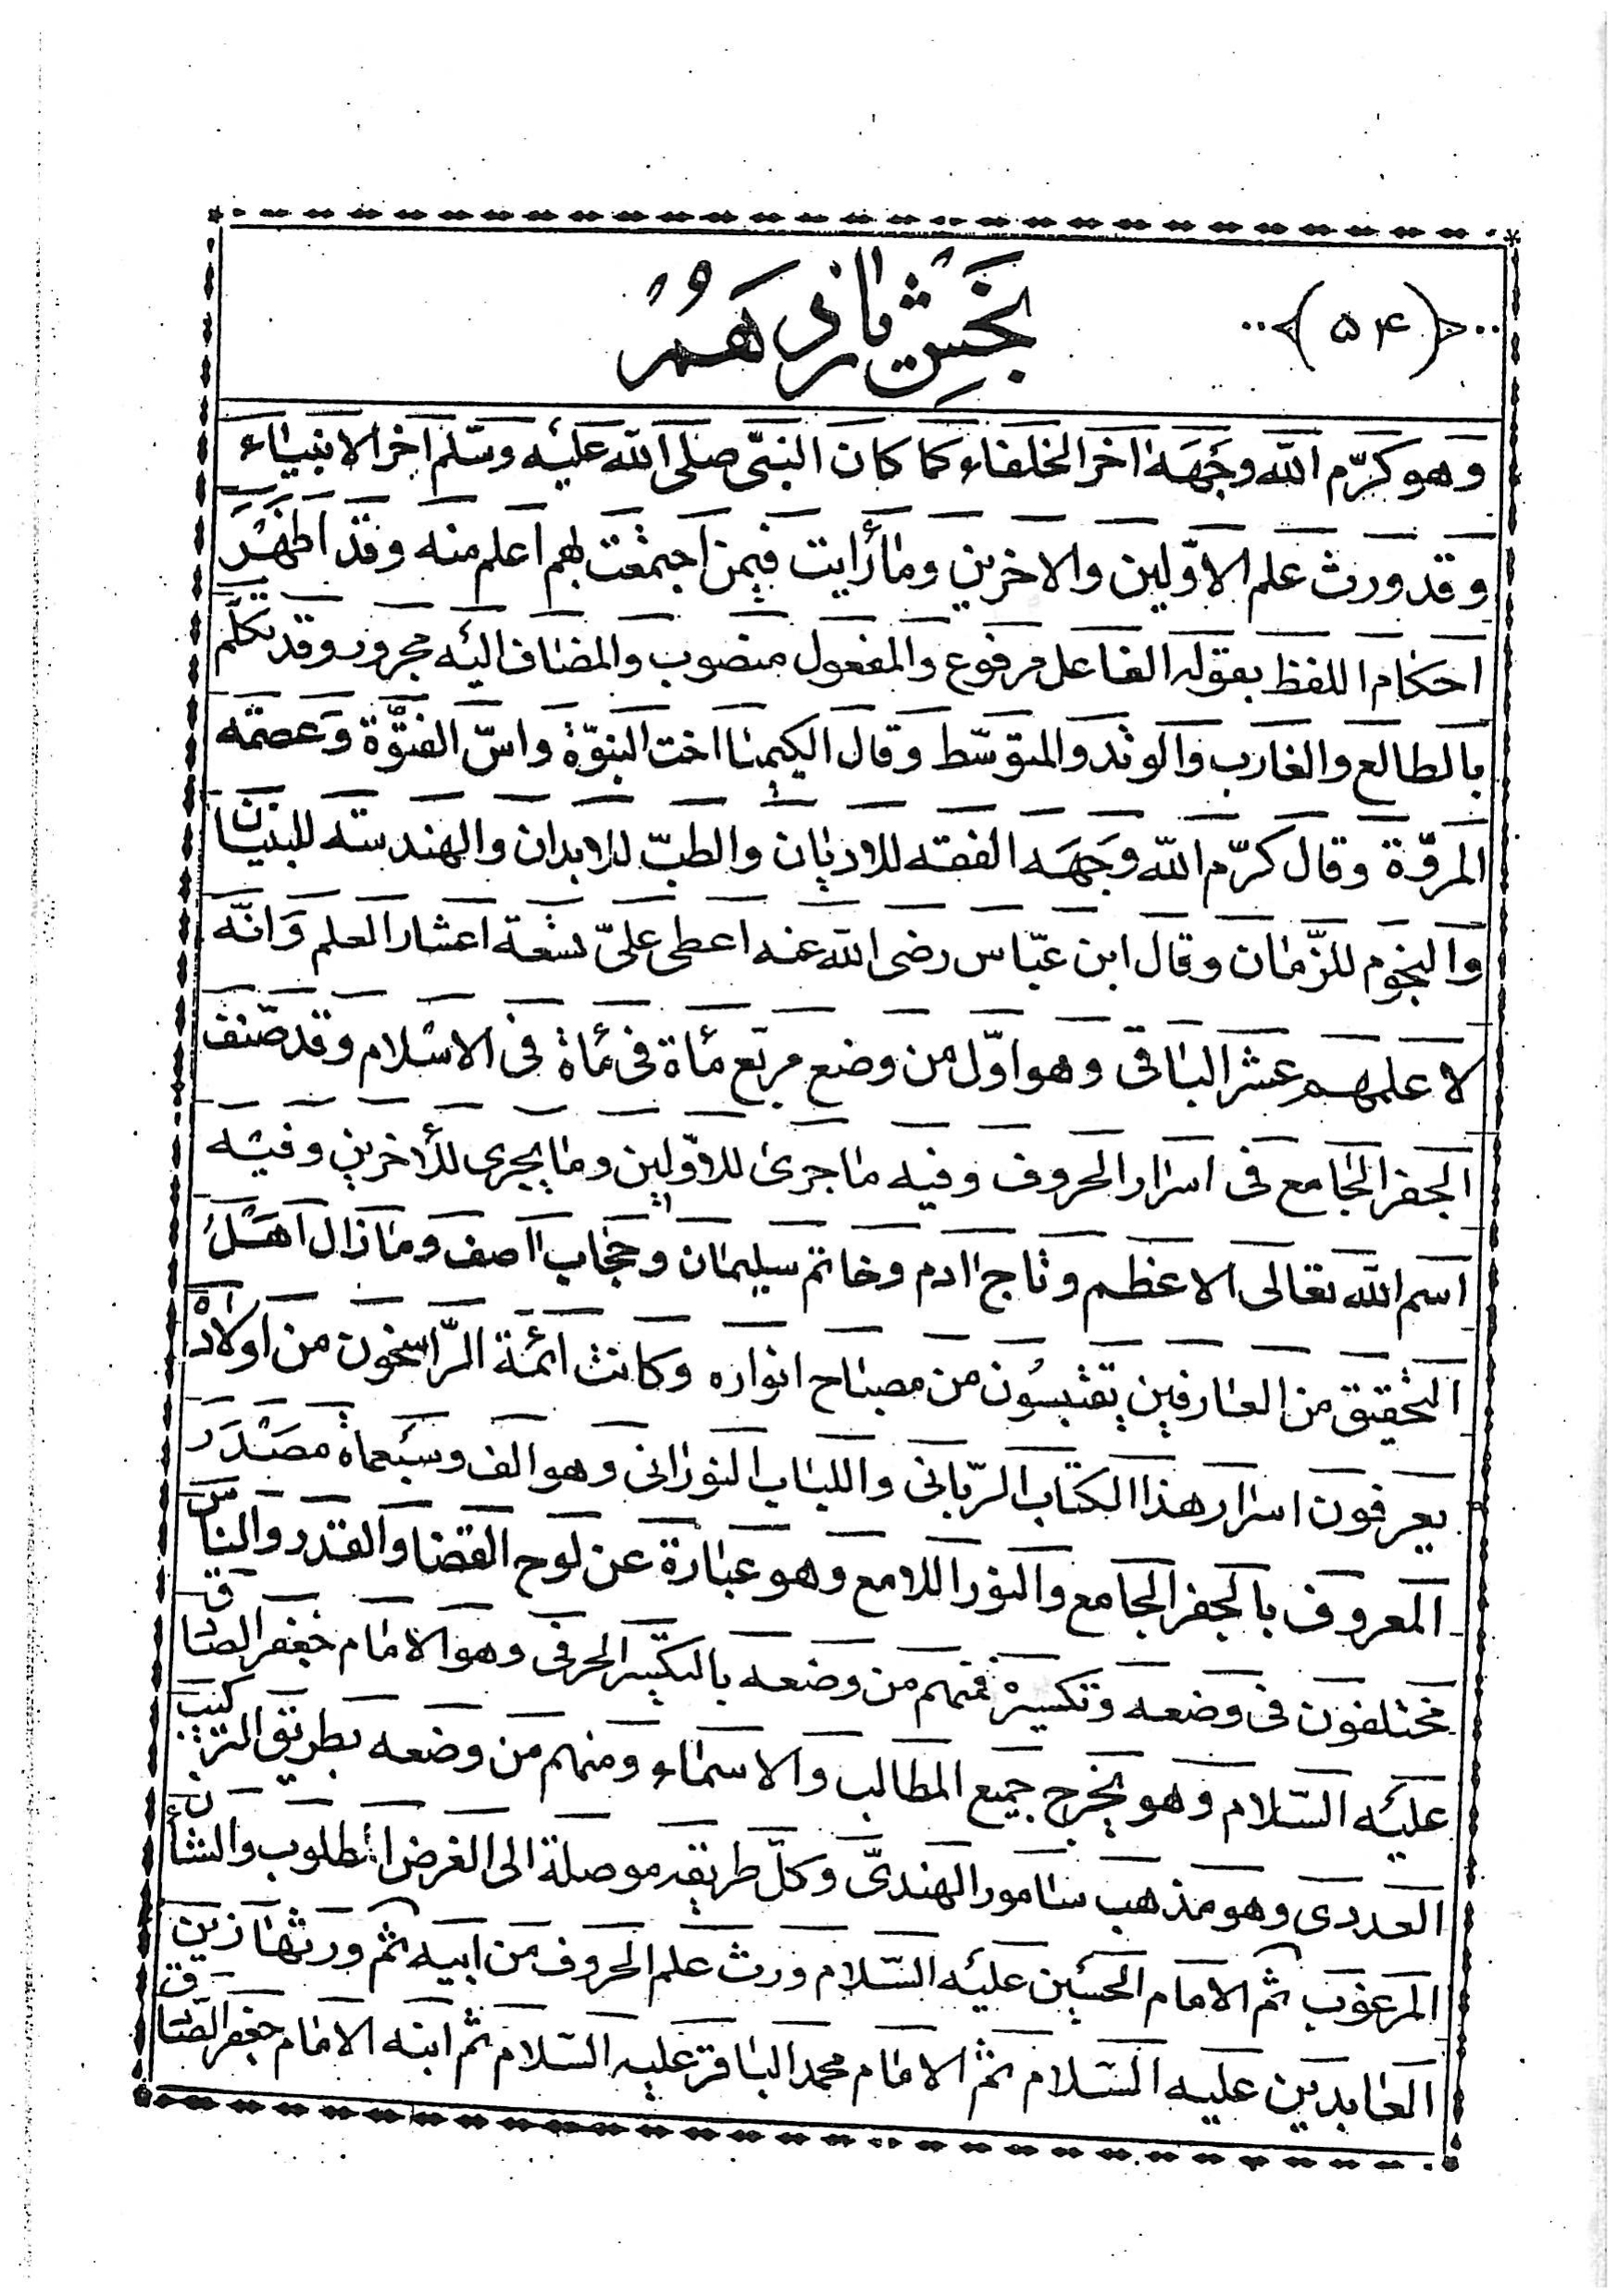 (۵۴)
بخش پانزدهم
وهو كرّم اللّه وجهه اخر الخلفاء كما كان النبىّ صلى اللّه عليه وسّلم اخر الانبياء
وقد ورث علم الاوّلين والاخرين وما رأيت فيمن اجتمعت بهم اعلم منه وقد اظهر
احكام اللفظ بقوله الفاعل مرفوع والمفعول منصوب والمضاف اليه مجرور وقد تكلّم
بالطالع والغارب والوتد والمتوسّط وقال الكيميا اخت النبوّة واسّ الفتوّة وعصمة
المروّة وقال كرّم اللّه وجهه الفقه للاديان والطبّ للابدان والهندسة للبنيان
والنجوم للزّمان وقال ابن عبّاس رضى اللّه عنه اعطى علىّ تسعة اعشار العلم وانّه
لاعلمهم عشر الباقى وهو اوّل من وضع مربّع مأة فى مأة فى الاسلام وقد صنّف
الجفر الجامع فى اسرار الحروف وفيه ما جرى للاوّلين وما يجرى للأخرين وفيه
اسم اللّه تعالى الاعظم وتاج ادم وخاتم سليمان وحجاب اصف وما زال اهل
التحقيق من العارفين يقتبسون من مصباح انواره وكانت ائمّة الرّاسخون من اولاده
يعرفون اسرار هذا الكتاب الرّبانى واللباب النورانى وهو الف وسبعمأة مصدر
المعروف بالجفر الجامع والنور اللامع وهو عبارة عن لوح القضا والقدر والناس
مختلفون فى وضعه وتكسيره فمنهم من وضعه بالتكسير الحرفى وهو الامام جعفر الصّادق
عليه السّلام وهو يخرج جميع المطالب والاسماء ومنهم من وضعه بطريق التركيب
العددى وهو مذهب سامور الهندىّ وكلّ طريقه موصلة الى الغرض المطلوب والشأن
المرغوب ثم الامام الحسين عليه السّلام ورث علم الحروف من ابيه ثم ورثها زين
العابدين عليه السّلام ثم الامام محمد الباقر عليه السّلام ثم ابنه الامام جعفر الصّادق